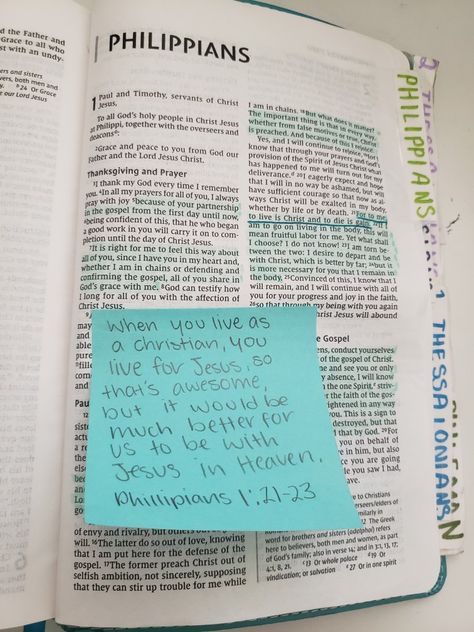 d the Father and
Grace to all who
st with an undy-
ers and sisters
vers, both men and
24 Or Grace
e our Lord Jesus
PHILIPPIANS
1 Paul and Timothy, servants of Christ
Jesus,
To all God's holy people in Christ Jesus
at Philippi, together with the overseers and
deacons:
2Grace and peace to you from God our
Father and the Lord Jesus Christ.
Thanksgiving and Prayer
3I thank my God every time I remember
you. 4In all my prayers for all of you, I always
pray with joy 5because of your partnership
in the gospel from the first day until now,
6being confident of this, that he who began
a good work in you will carry it on to com-
pletion until the day of Christ Jesus.
7It is right for me to feel this way about
all of you, since I have you in my heart and,
whether I am in chains or defending and
confirming the gospel, all of you share in
God's grace with me. 8God can testify how
I long for all of you with the affection of
Christ Jesus.
may
Pau
of envy and rivalry, but others out
will. 16The latter do so out of love, knowing
that I am put here for the defense of the
gospel. 17The former preach Christ out of
selfish ambition, not sincerely, supposing
that they can stir up trouble for me while
I am in chains. 18But what does it matter?
The important thing is that in every way,
whether from false motives or true, Christ
is preached. And because of this I rejoice.
Yes, and I will continue to rejoice, 19for I
know that through your prayers and God's
provision of the Spirit of Jesus Christ what
has happened to me will turn out for my
deliverance. 20I eagerly expect and hope
that I will in no way be ashamed, but will
have sufficient courage so that now as al-
ways Christ will be exalted in my body,
whether by life or by death. 21For to me,
to live is Christ and to die is gain. 22If I
am to go on living in the body, this will
mean fruitful labor for me. Yet what shall
I choose? I do not know! 23I am torn be-
tween the two: I desire to depart and be
with Christ, which is better by far; 24but it
is more necessary for you that I remain in
the body. 25Convinced of this, I know that I
will remain, and I will continue with all of
you for your progress and joy in the faith,
26so that through my being with you again
r boasting in Christ Jesus will abound
he Gospel
ens, conduct yourselves
the gospel of Christ.
e and see you or only
y absence, I will know
n the one Spirit, striv-
r the faith of the gos-
ightened in any way
you. This is a sign to
destroyed, but that
that by God. 29For
you on behalf of
e in him, but also
ce you are going
le you saw I had,
ave.
e to Christians
erseers/elders of
milarly in
12 The Greek
word for brothers and sisters (adelphoi) refers
here to believers, both men and women, as part
of God's family; also in verse 14; and in 3:1, 13, 17;
4:1, 8, 21. 13 Or whole palace 19 Or
vindication; or salvation 27 Or in one spirit
When you live as
a christian, you
live for Jesus, so
that's awesome,
but it would be
much better for
us to be with
Jesus in Heaven.
Phillipians 1:21-23
PHILIPPIANS
1 THESSATONIANS